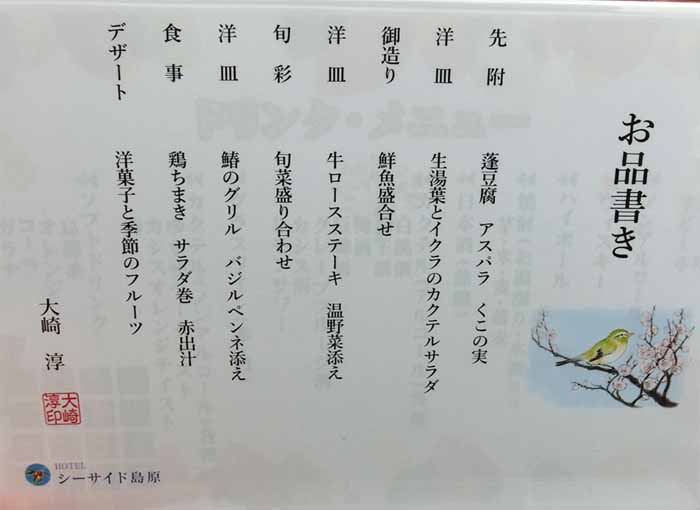 お品書き
先附　蓬豆腐　アスパラ　くこの実
洋皿　生湯葉とイクラのカクテルサラダ
御造り　鮮魚盛合せ
洋皿　牛ロースステーキ　温野菜添え
旬彩　旬菜盛り合わせ
洋皿　鰆のグリル　バジルペンネ添え
食事　鶏ちまき　サラダ巻　赤出汁
デザート　洋菓子と季節のフルーツ
大崎　淳
大崎淳印
HOTEL
シーサイド島原